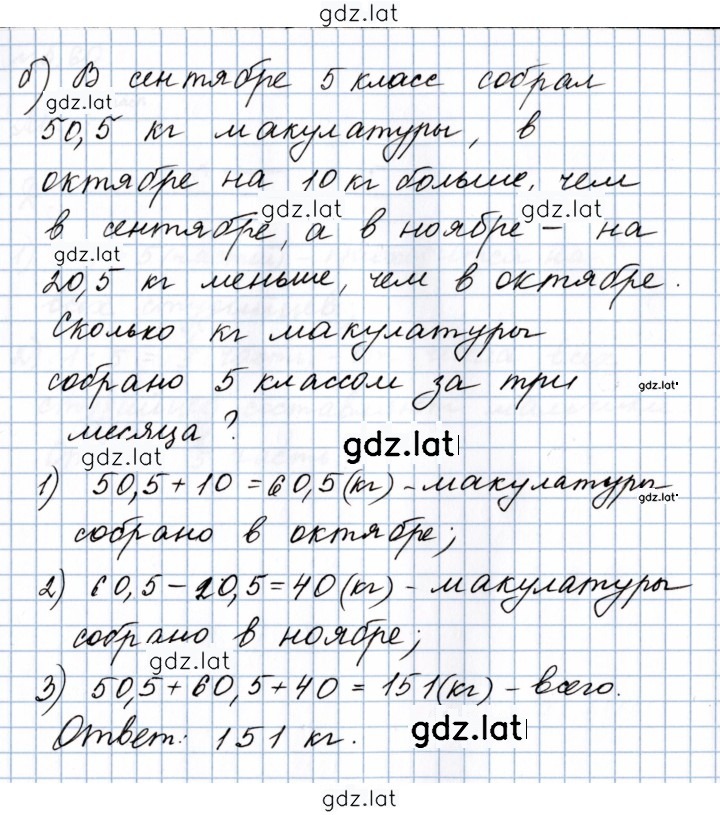 gdz.lat
б) В сентябре 5 класс собрал
gdz.lat
50,5 кг макулатуры, в
октябре на 10 кг больше, чем
gdz.lat gdz.lat
в сентябре, а в ноябре – на
gdz.lat
20,5 кг меньше, чем в октябре.
Сколько кг макулатуры
собрано 5 классом за три gdz.lat
месяца? gdz.lat
gdz.lat
1) 50,5 + 10 = 60,5 (кг) – макулатуры
gdz.lat
собрано в октябре;
2) 60,5 – 20,5 = 40 (кг) – макулатуры
собрано в ноябре;
gdz.lat
3) 50,5 + 60,5 + 40 = 151 (кг) – всего.
Ответ: 151 кг. gdz.lat
gdz.lat